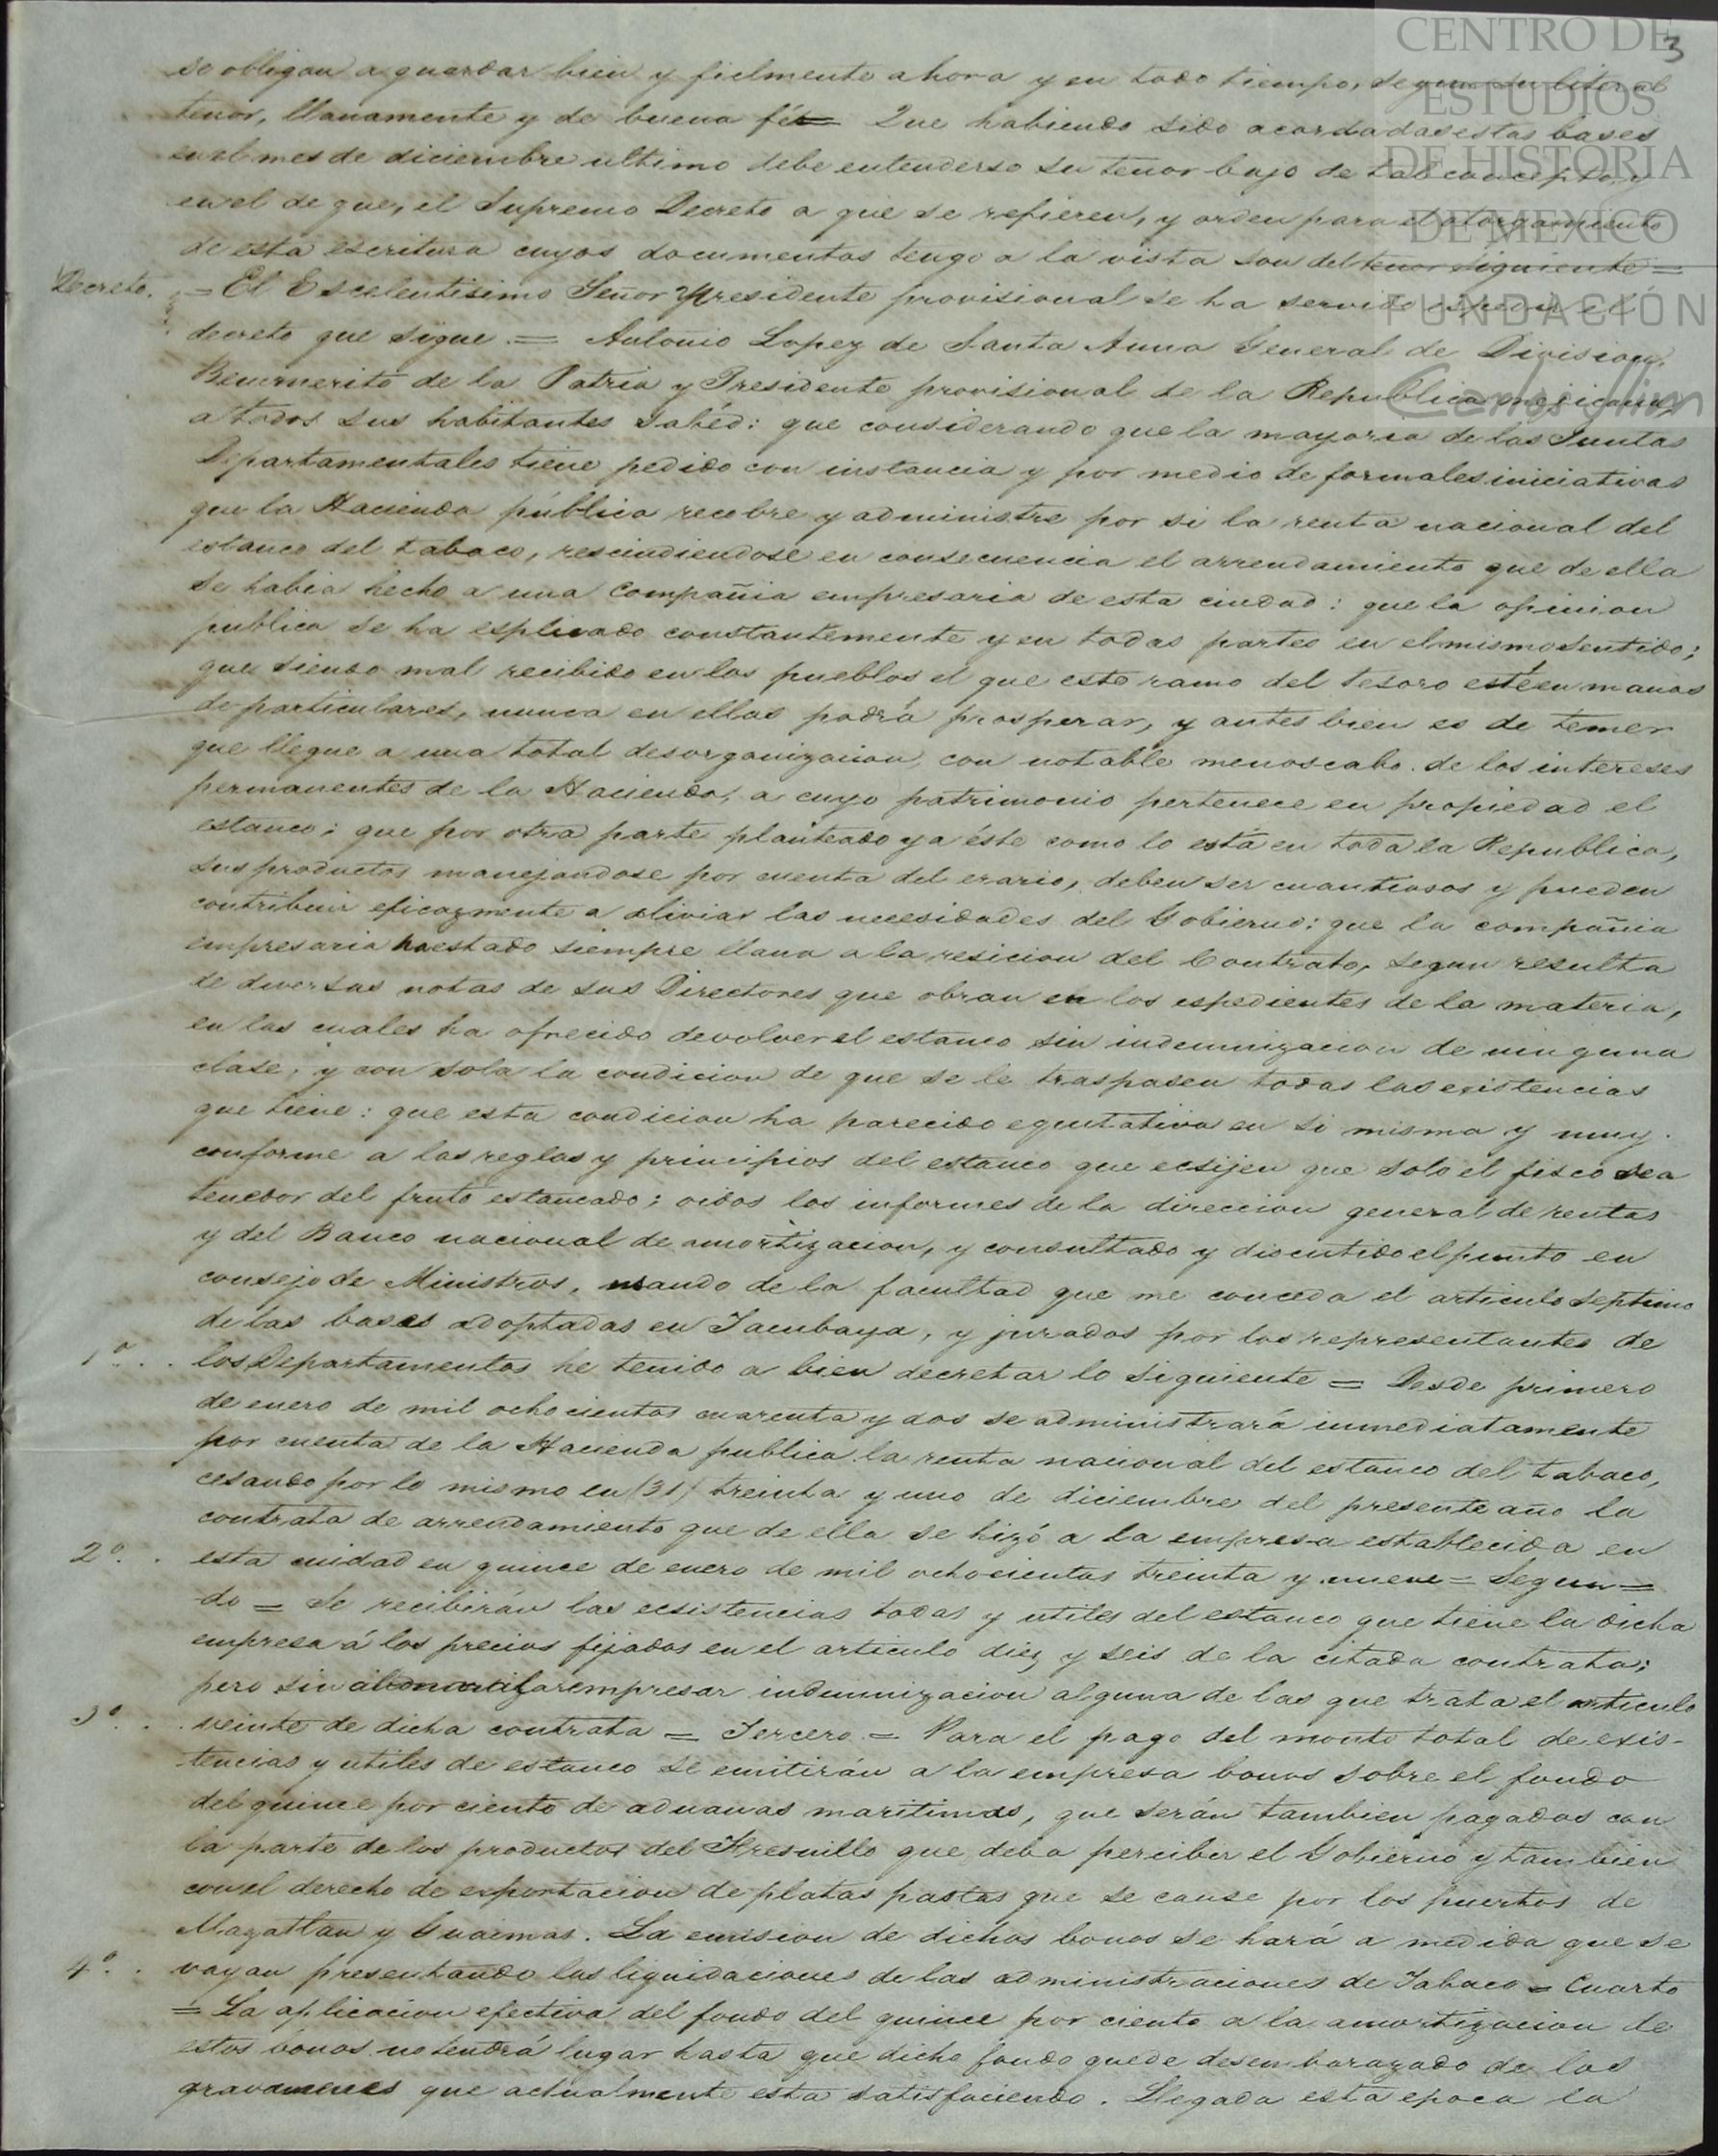 CENTRO DE
ESTUDIOS
DE HISTORIA
DE MEXICO
FUNDACIÓN
Carlos Slim
3
se obligan a guardar bien y fielmente ahora y en todo tiempo, segun su literal
tenor, llanamente y de buena fé = Que habiendo sido acordadas estas báses
en el mes de diciembre ultimo debe entenderse su tenor bajo de tal concepto, y
en el de que, el Supremo Decreto a que se refieren, y orden para el otorgamiento
de esta escritura cuyos documentos tengo a la vista son del tenor siguiente =
Decreto. = El Escelentisimo Señor Presidente provisional se ha servido espedir el
decreto que sigue. = Antonio Lopez de Santa Anna General de Division,
Benemerito de la Patria y Presidente provisional de la Republica mejicana,
a todos sus habitantes sabéd: que considerando que la mayoria de las Juntas
Departamentales tiene pedido con instancia y por medio de formales iniciativas
que la Hacienda pública recobre y administre por si la renta nacional del
estanco del tabaco, rescindiendose en consecuencia el arrendamiento que de ella
se habia hecho a una Compañia empresaria de esta ciudad: que la opinion
publica se ha esplicado constantemente y en todas partes en el mismo sentido;
que siendo mal recibido en los pueblos el que este ramo del tesoro esté en manos
de particulares, nunca en ellas podrá prosperar, y antes bien es de temer
que llegue a una total desorganizacion, con notable menoscabo de los intereses
permanentes de la Hacienda, a cuyo patrimonio pertenece en propiedad el
estanco; que por otra parte planteado ya éste como lo está en toda la Republica,
sus productos manejandose por cuenta del erario, deben ser cuantiosos y pueden
contribuir eficazmente a aliviar las necesidades del Gobierno: que la compañia
empresaria ha estado siempre llana a la resicion del Contrato, segun resulta
de diversas notas de sus Directores que obran en los espedientes de la materia,
en las cuales ha ofrecido devolver el estanco sin indemnizacion de ninguna
clase, y con sola la condicion de que se le traspasen todas las existencias
que tiene: que esta condicion ha parecido equitativa en si misma y muy
conforme a las reglas y principios del estanco que ecsijen que solo el fisco sea
tenedor del fruto estancado; oidos los informes de la direccion general de rentas
y del Banco nacional de amortizacion, y consultado y discutido el punto en
consejo de Ministros, usando de la facultad que me conceda el articulo septimo
de las bases adoptadas en Tacubaya, y juradas por los representantes de
1º. . . los Departamentos he tenido a bien decretar lo siguiente = Desde primero
de enero de mil ochocientos cuarenta y dos se administrará inmediatamente
por cuenta de la Hacienda publica la renta nacional del estanco del tabaco,
cesando por lo mismo en (31) treinta y uno de diciembre del presente año la
contrata de arrendamiento que de ella se hizó a la empresa establecida en
2º. . esta cuidad en quince de enero de mil ochocientos treinta y nueve = Segun=
do = Se recibirán las ecsistencias todas y utiles del estanco que tiene la dicha
empresa á los precios fijados en el articulo diez y seis de la citada contrata;
pero sin empresar indemnizacion alguna de las que trata el articulo
3º. . . veinte de dicha contrata = Tercero = Para el pago del monto total de exis-
tencias y utiles de estanco se emitirán a la empresa bonos sobre el fondo
del quince por ciento de aduanas maritimas, que serán tambien pagados con
la parte de los productos del Fresnillo que deba percibir el Gobierno y tambien
con el derecho de exportacion de platas pastas que se cause por los puertos de
Mazatlan y Guaimas. La emision de dichos bonos se hará a medida que se
4º. . vayan presentando las liquidaciones de las administraciones de Tabaco = Cuarto
= La aplicacion efectiva del fondo del quince por ciento a la amortizacion de
estos bonos no tendrá lugar hasta que dicho fondo quede desembarazado de los
gravamenes que actualmente esta satisfaciendo. Llegada esta epoca la